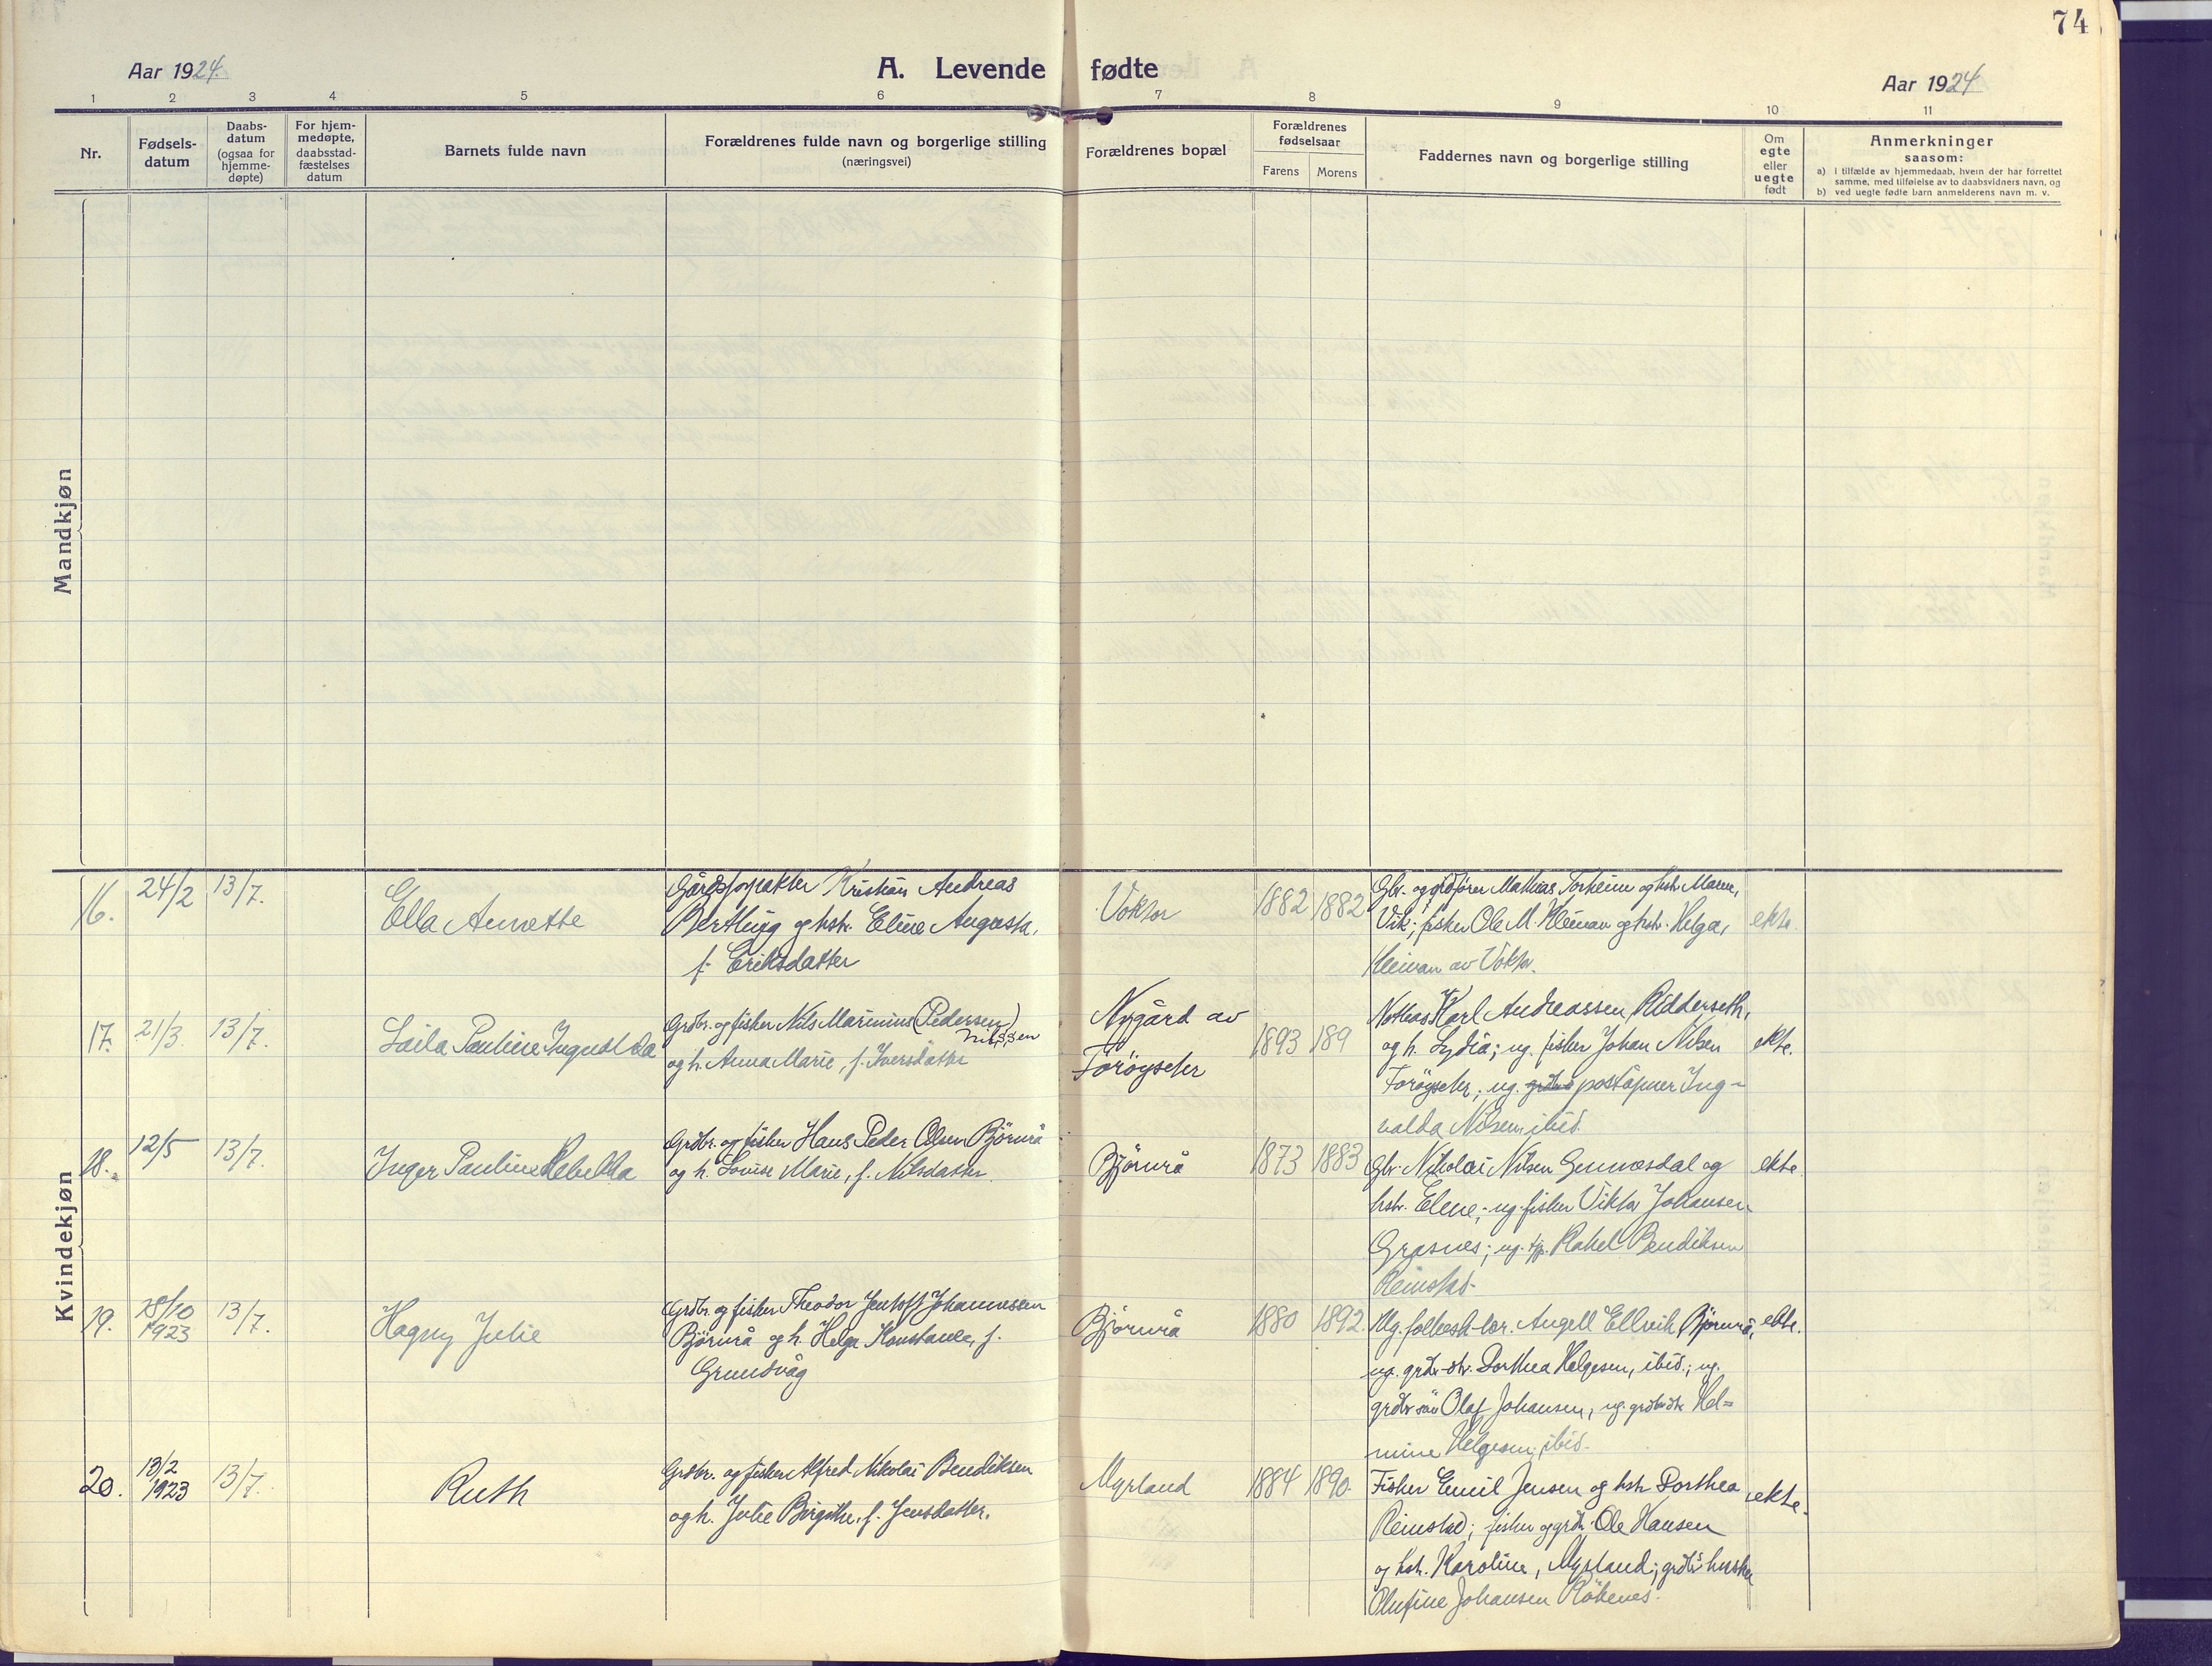 74
Aar 1924.
A. Levende fødte
Aar 1924
1 2 3 4 5 6 7 8 9 10 11
Nr.
Fødsels-
datum
Daabs-
datum
(ogsaa for
hjemme-
døpte)
For hjem-
medøpte,
daabsstad-
fæstelses
datum
Barnets fulde navn
Forældrenes fulde navn og borgerlige stilling
(næringsvei)
Forældrenes bopæl
Forældrenes
fødselsaar
Farens Morens
Faddernes navn og borgerlige stilling
Om
egte
eller
uegte
født
Anmerkninger
saasom:
a) i tilfælde av hjemmedaab, hvem der har forrettet
samme, med tilføielse av to daabsvidners navn, og
b) ved uegte fødte barn anmelderens navn m. v.
Mandkjøn
Kvindekjøn
16.
24/2
13/7.
Ella Annette
Kristian Andreas
og hstr. Eline Augusta,
f. Eriksdatter
1882
1882
Gbr. og Mathias Torheim og hstr. Marie,
Vik; fisker Ole M. Kleivan og hstr. Helga,
Kleivan av
ekte.
17.
21/3.
13/7.
Laila Pauline Ingvalda
Grdbr. og fisker Nils Marinius (Pedersen)
Nilssen
og h. Anna Marie, f. Iversdatter
Nygård av
1893
189
Karl Andreassen,
og h. Lydia; ug. fisker Johan Nilsen
ug. poståpner Ing-
valda Nilsen, ibid.
ekte.
18.
12/5
13/7.
Inger Pauline Rebekka
Grdbr. og fisker Hans Peder Olsen Björnrå
og h. Lovise Marie, f. Nilsdatter.
Björnrå
1873
1883
Gbr. Nikolai Nilsen og
hstr. Elene; ug. fisker Viktor Johansen
Grasnes; ug. Rakel Bendiksen
Reinstad.
ekte.
19.
28/10
1923
13/7.
Hagny Julie
Grdbr. og fisker Theodor Jentoft Johannessen
Björnrå og h. Helga Konstanse, f.
Grundvåg
Björnrå
1880
1892.
Ug. folkesk. lær. Angell Ellvik, Björnrå,
ug. Dorthea Helgesen, ibid.; ug.
Olaf Johansen, ug. Hel=
mine Helgesen, ibid.
ekte.
20.
13/2
1923
13/7.
Ruth
Grdbr. og fisker Alfred Nikolai Bendiksen
og h. Julie Birgithe, f. Jensdatter.
Myrland
1884
1890.
Fisker Emil Jensen og hstr. Dorthea
Reinstad; fisker og grdbr. Ole Hansen
og hstr. Karoline, Myrland;
Olufine Johansen
ekte.